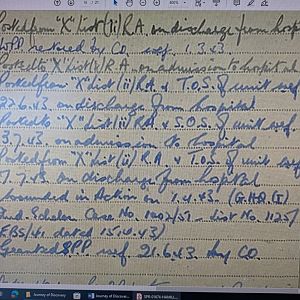 Posted from "X" list (ii) R.A. on discharge from hosp
WPP restored by CO. wef. 1.3.43.
Posted to "X" list (ii) R.A. on admission to hospital
Posted from "X" list (ii) R.A. & T.O.S. of unit wef
22.6.43. on discharge from hospital
Posted to "X" list (ii) R.A. & S.O.S. of unit wef.
3.7.43. on admission to hospital
Posted from "X" list (ii) R.A. & T.O.S. of unit wef
.7.43. on discharge from hospital
Wounded in Action on 1.4.43. (G.H.Q.
2nd Echelon Case No. List No. 1125/
dated 15.4.43)
Granted SPP. wef. 21.6.43 by CO.
Journey of Discovery
Journey of Discove